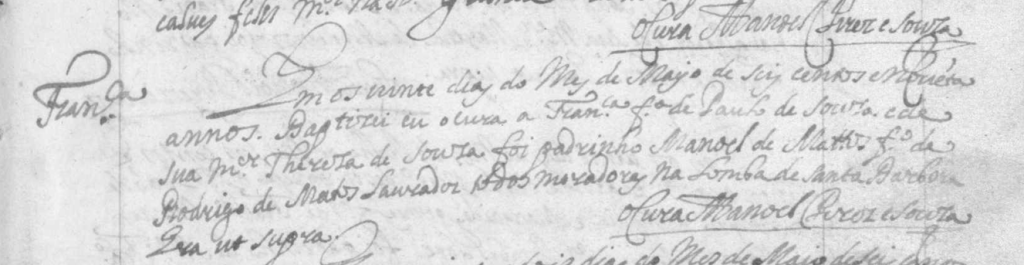 O Cura Manoel Pirez e Souza
Fran.ca
Em os uinte dias do Mes de Mayo de seis centos e Nouẽta
annos. Baptizei eu o cura a Fran.ca f.a de Paulo de Souza. e de
sua m.er Thereza de Souza foi padrinho Manoel de Mattos f.o de
Rodrigo de Matos Laurador todos moradores na Lomba de Santa Barbora
Era ut supra.
O Cura Manoel Pirez e Souza
dias do Mes de Maio de seis